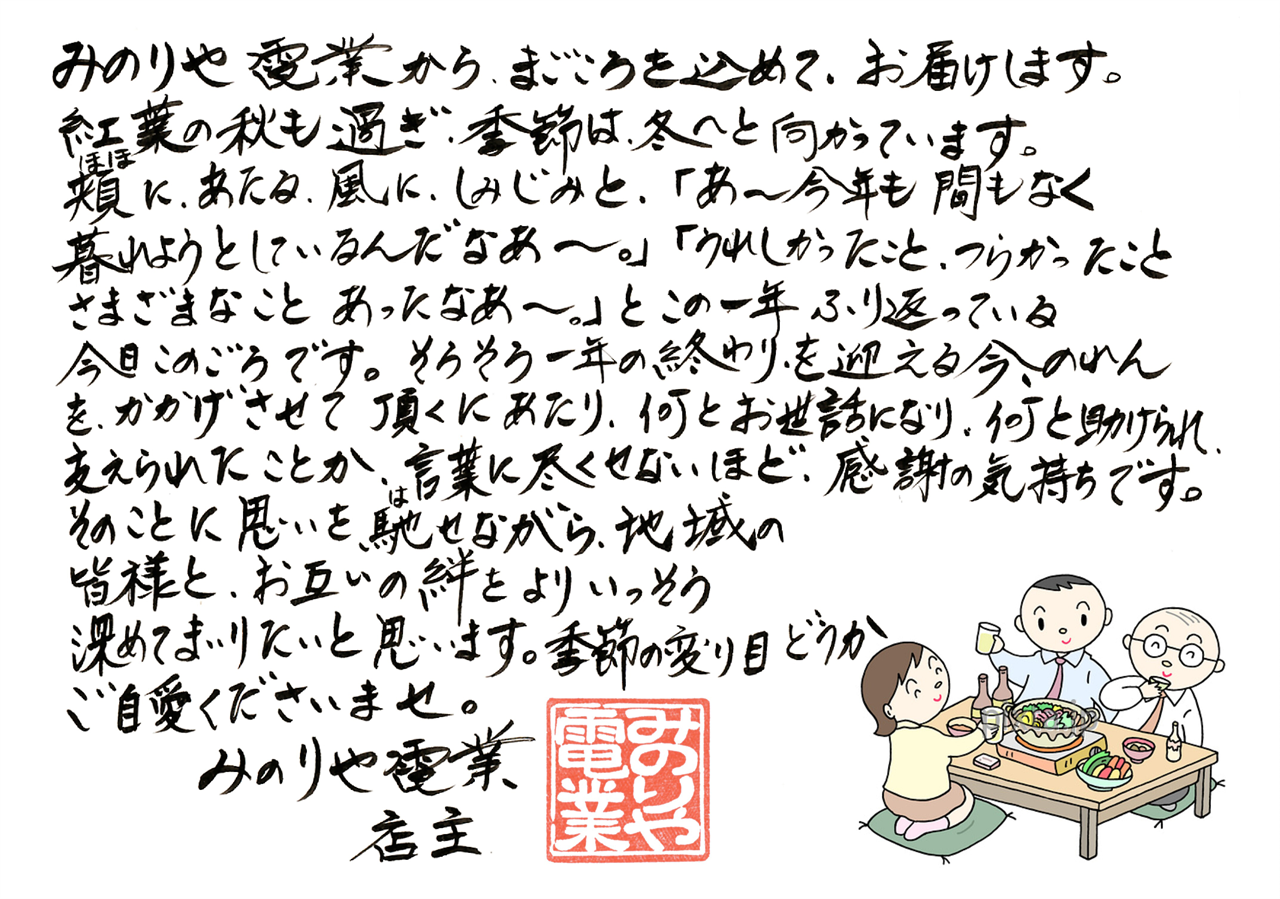 みのりや電業から、まごころを込めて、お届けします。
紅葉の秋も過ぎ、季節は、冬へと向かっています。
ほほ
頬に、あたる、風に、しみじみと、「あ〜今年も間もなく
暮れようとしているんだなあ〜。」「うれしかったこと、つらかったこと
さまざまなこと あったなあ〜。」とこの一年ふり返っている
今日このごろです。そろそろ一年の終わりを迎える今、のれん
を、かかげさせて頂くにあたり、何とお世話になり、何と助けられ、
支えられたことか、言葉に尽くせないほど、感謝の気持ちです。
は
そのことに思いを、馳せながら、地域の
皆様と、お互いの絆をよりいっそう
深めてまいりたいと思います。季節の変り目どうか
ご自愛くださいませ。
みのりや電業
店主
みのりや
電業